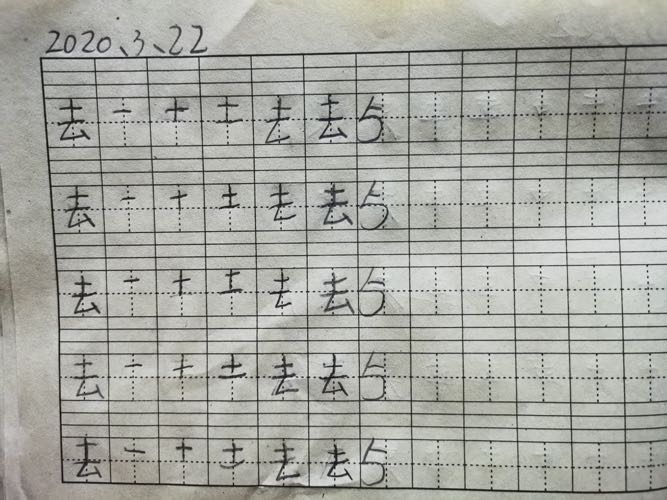 2020、3、22
去 一 十 土 去 去 5
去 一 十 土 去 去 5
去 一 十 土 去 去 5
去 一 十 土 去 去 5
去 一 十 土 去 去 5